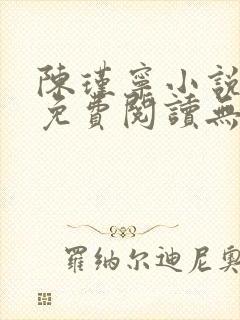 陳瑾寧小說
免費閱讀無
羅纳尔迪尼奧